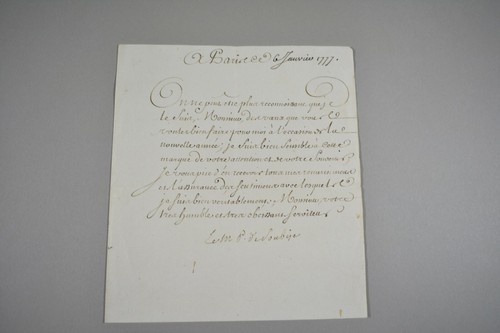 A Paris ce 6 Janvier 1777.
On ne peut être plus reconnoissant que je
le suis, Monsieur, des vœux que vous
voulez bien faire pour moi à l'occasion de la
nouvelle année; je suis bien sensible à cette
marque de votre attention et de votre souvenir
je vous prie d'en recevoir tous mes remerciemens
et l'assurance des sentimens avec lesquels
je suis bien véritablement, Monsieur, votre
très humble et très obéissant serviteur
Le M. P. de Soubise